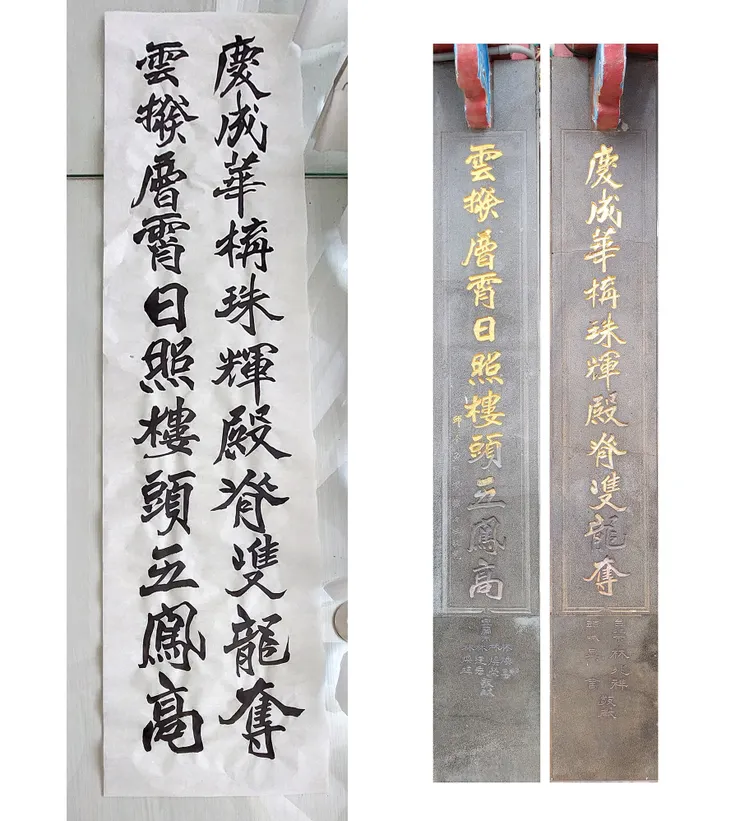 慶成華構珠輝殿脊雙龍奪
雲撥層霄日照樓頭五鳳高
慶成華構珠輝殿脊雙龍奪
雲撥層霄日照樓頭五鳳高